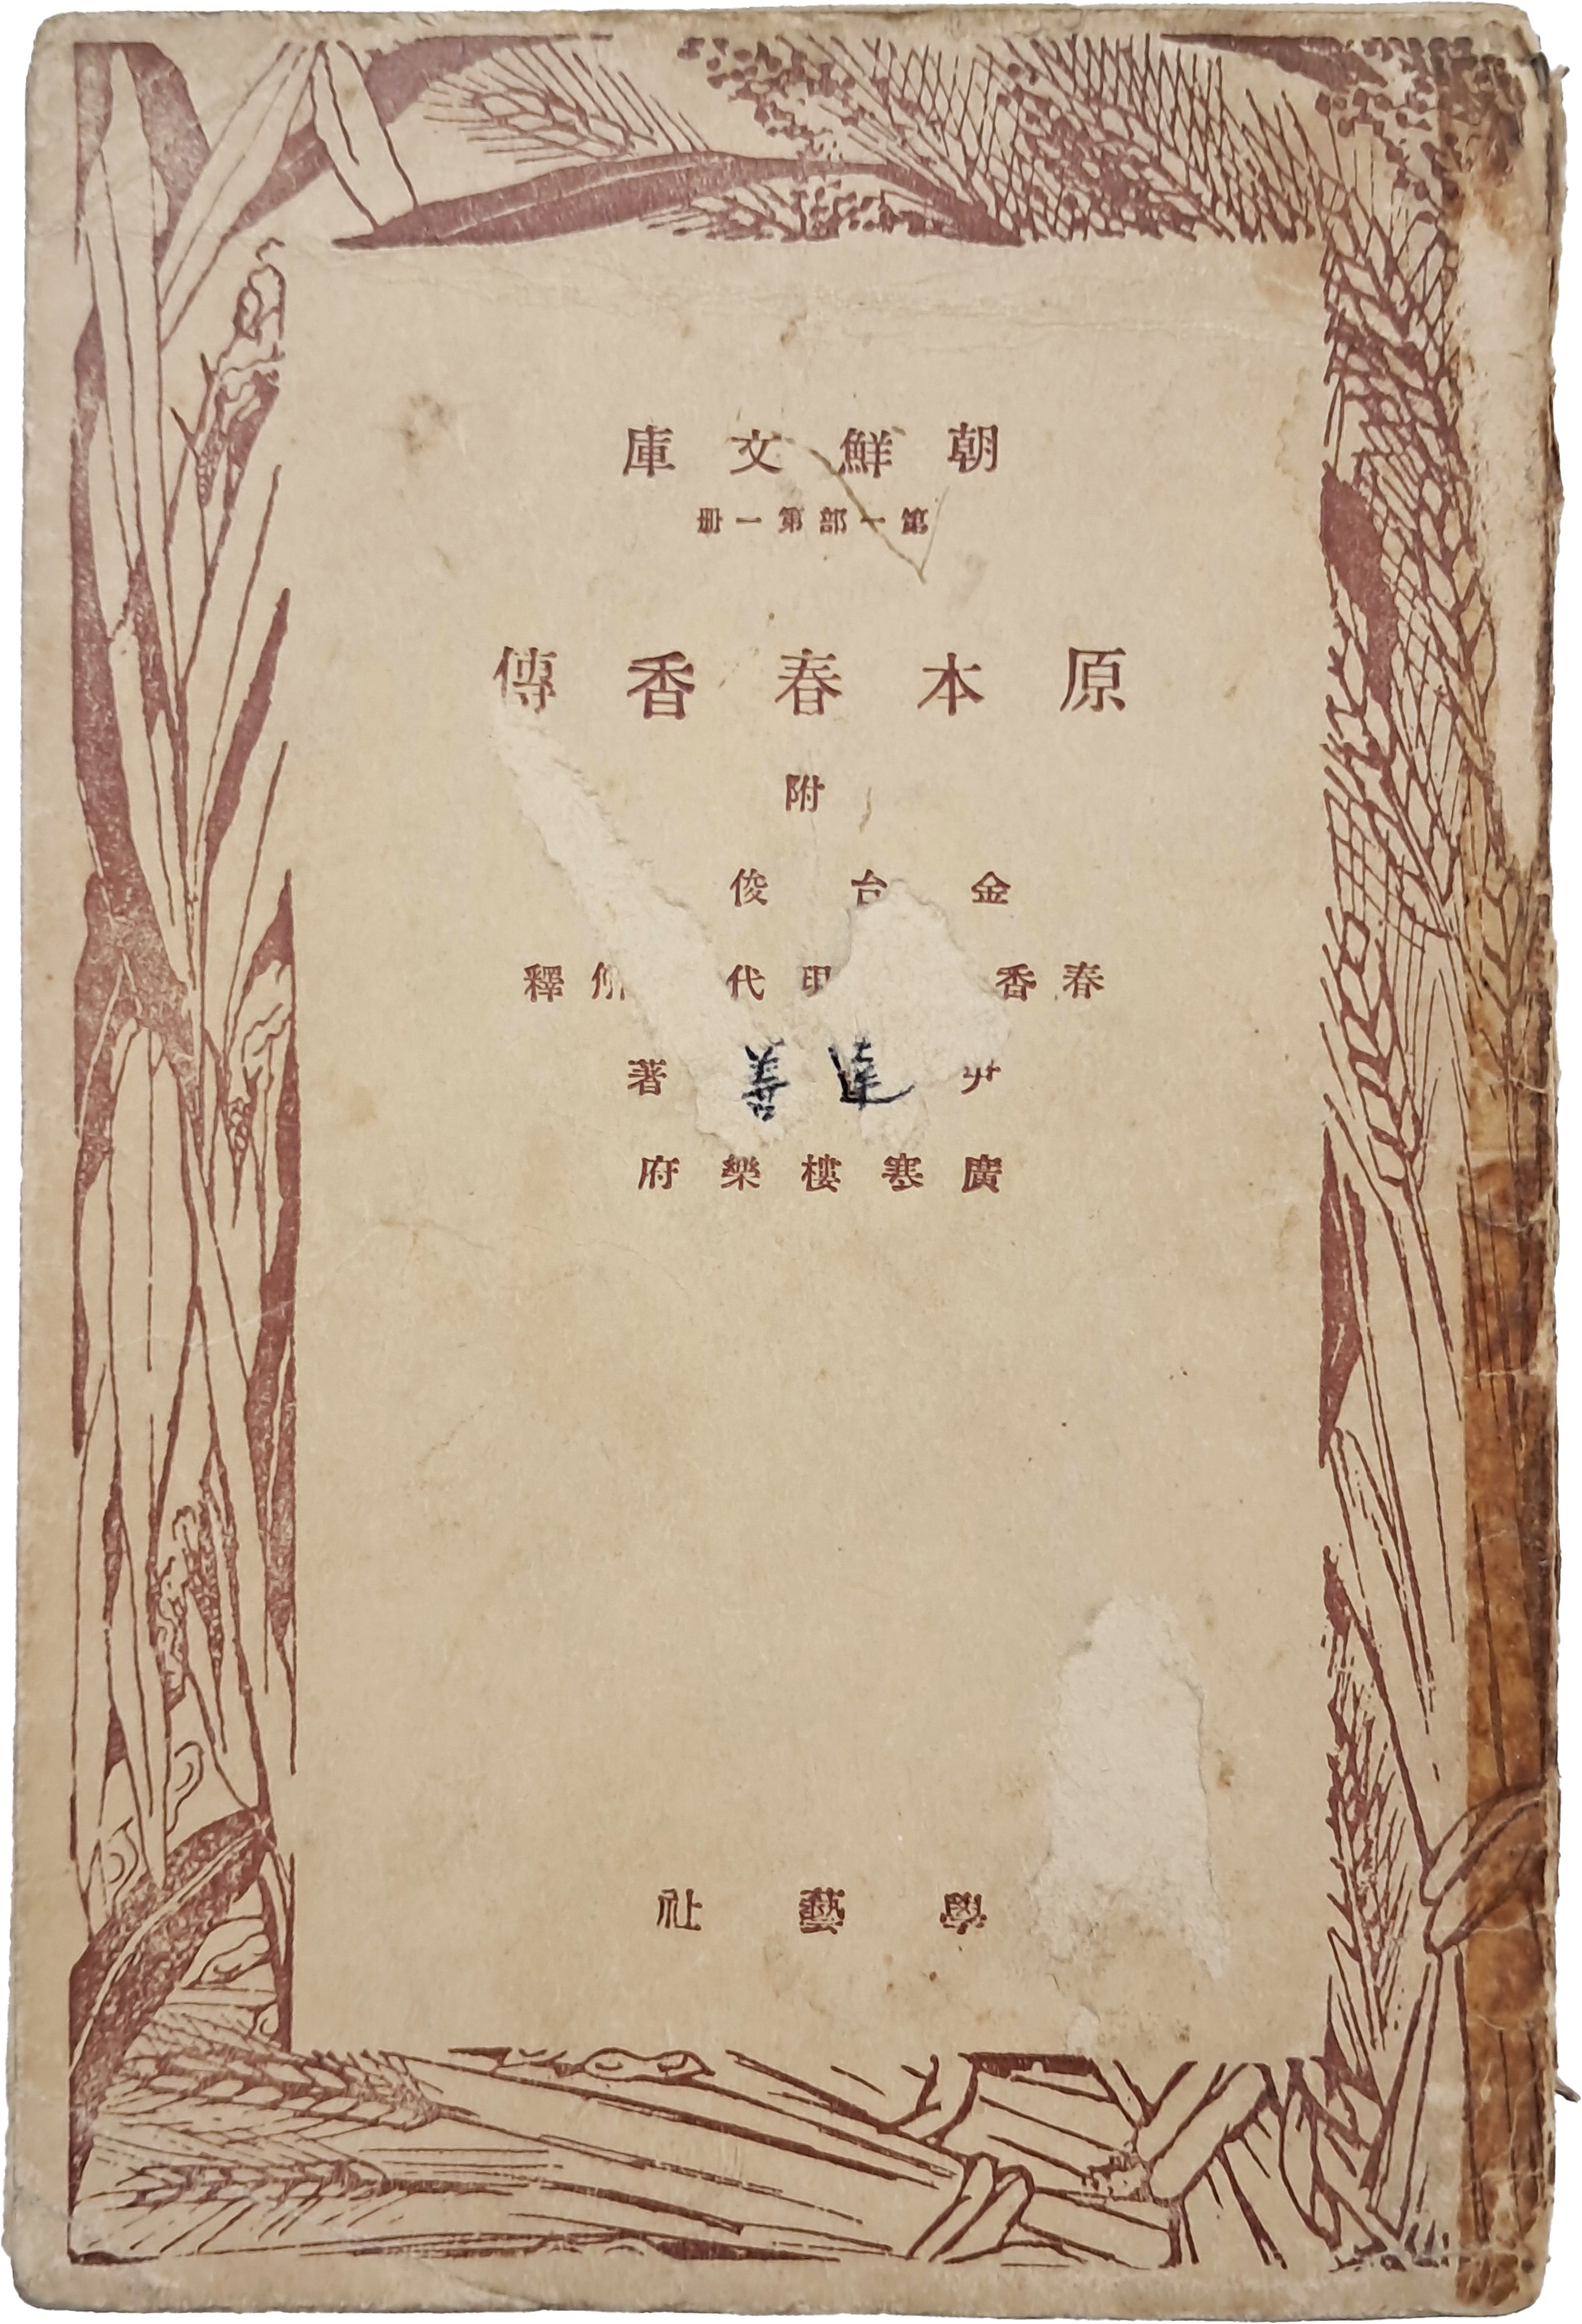 朝鮮文庫
第一部第一册
原本春香傳
附
金台俊
春香 現代 解釋
尹達善著
廣寒樓樂府
學藝社